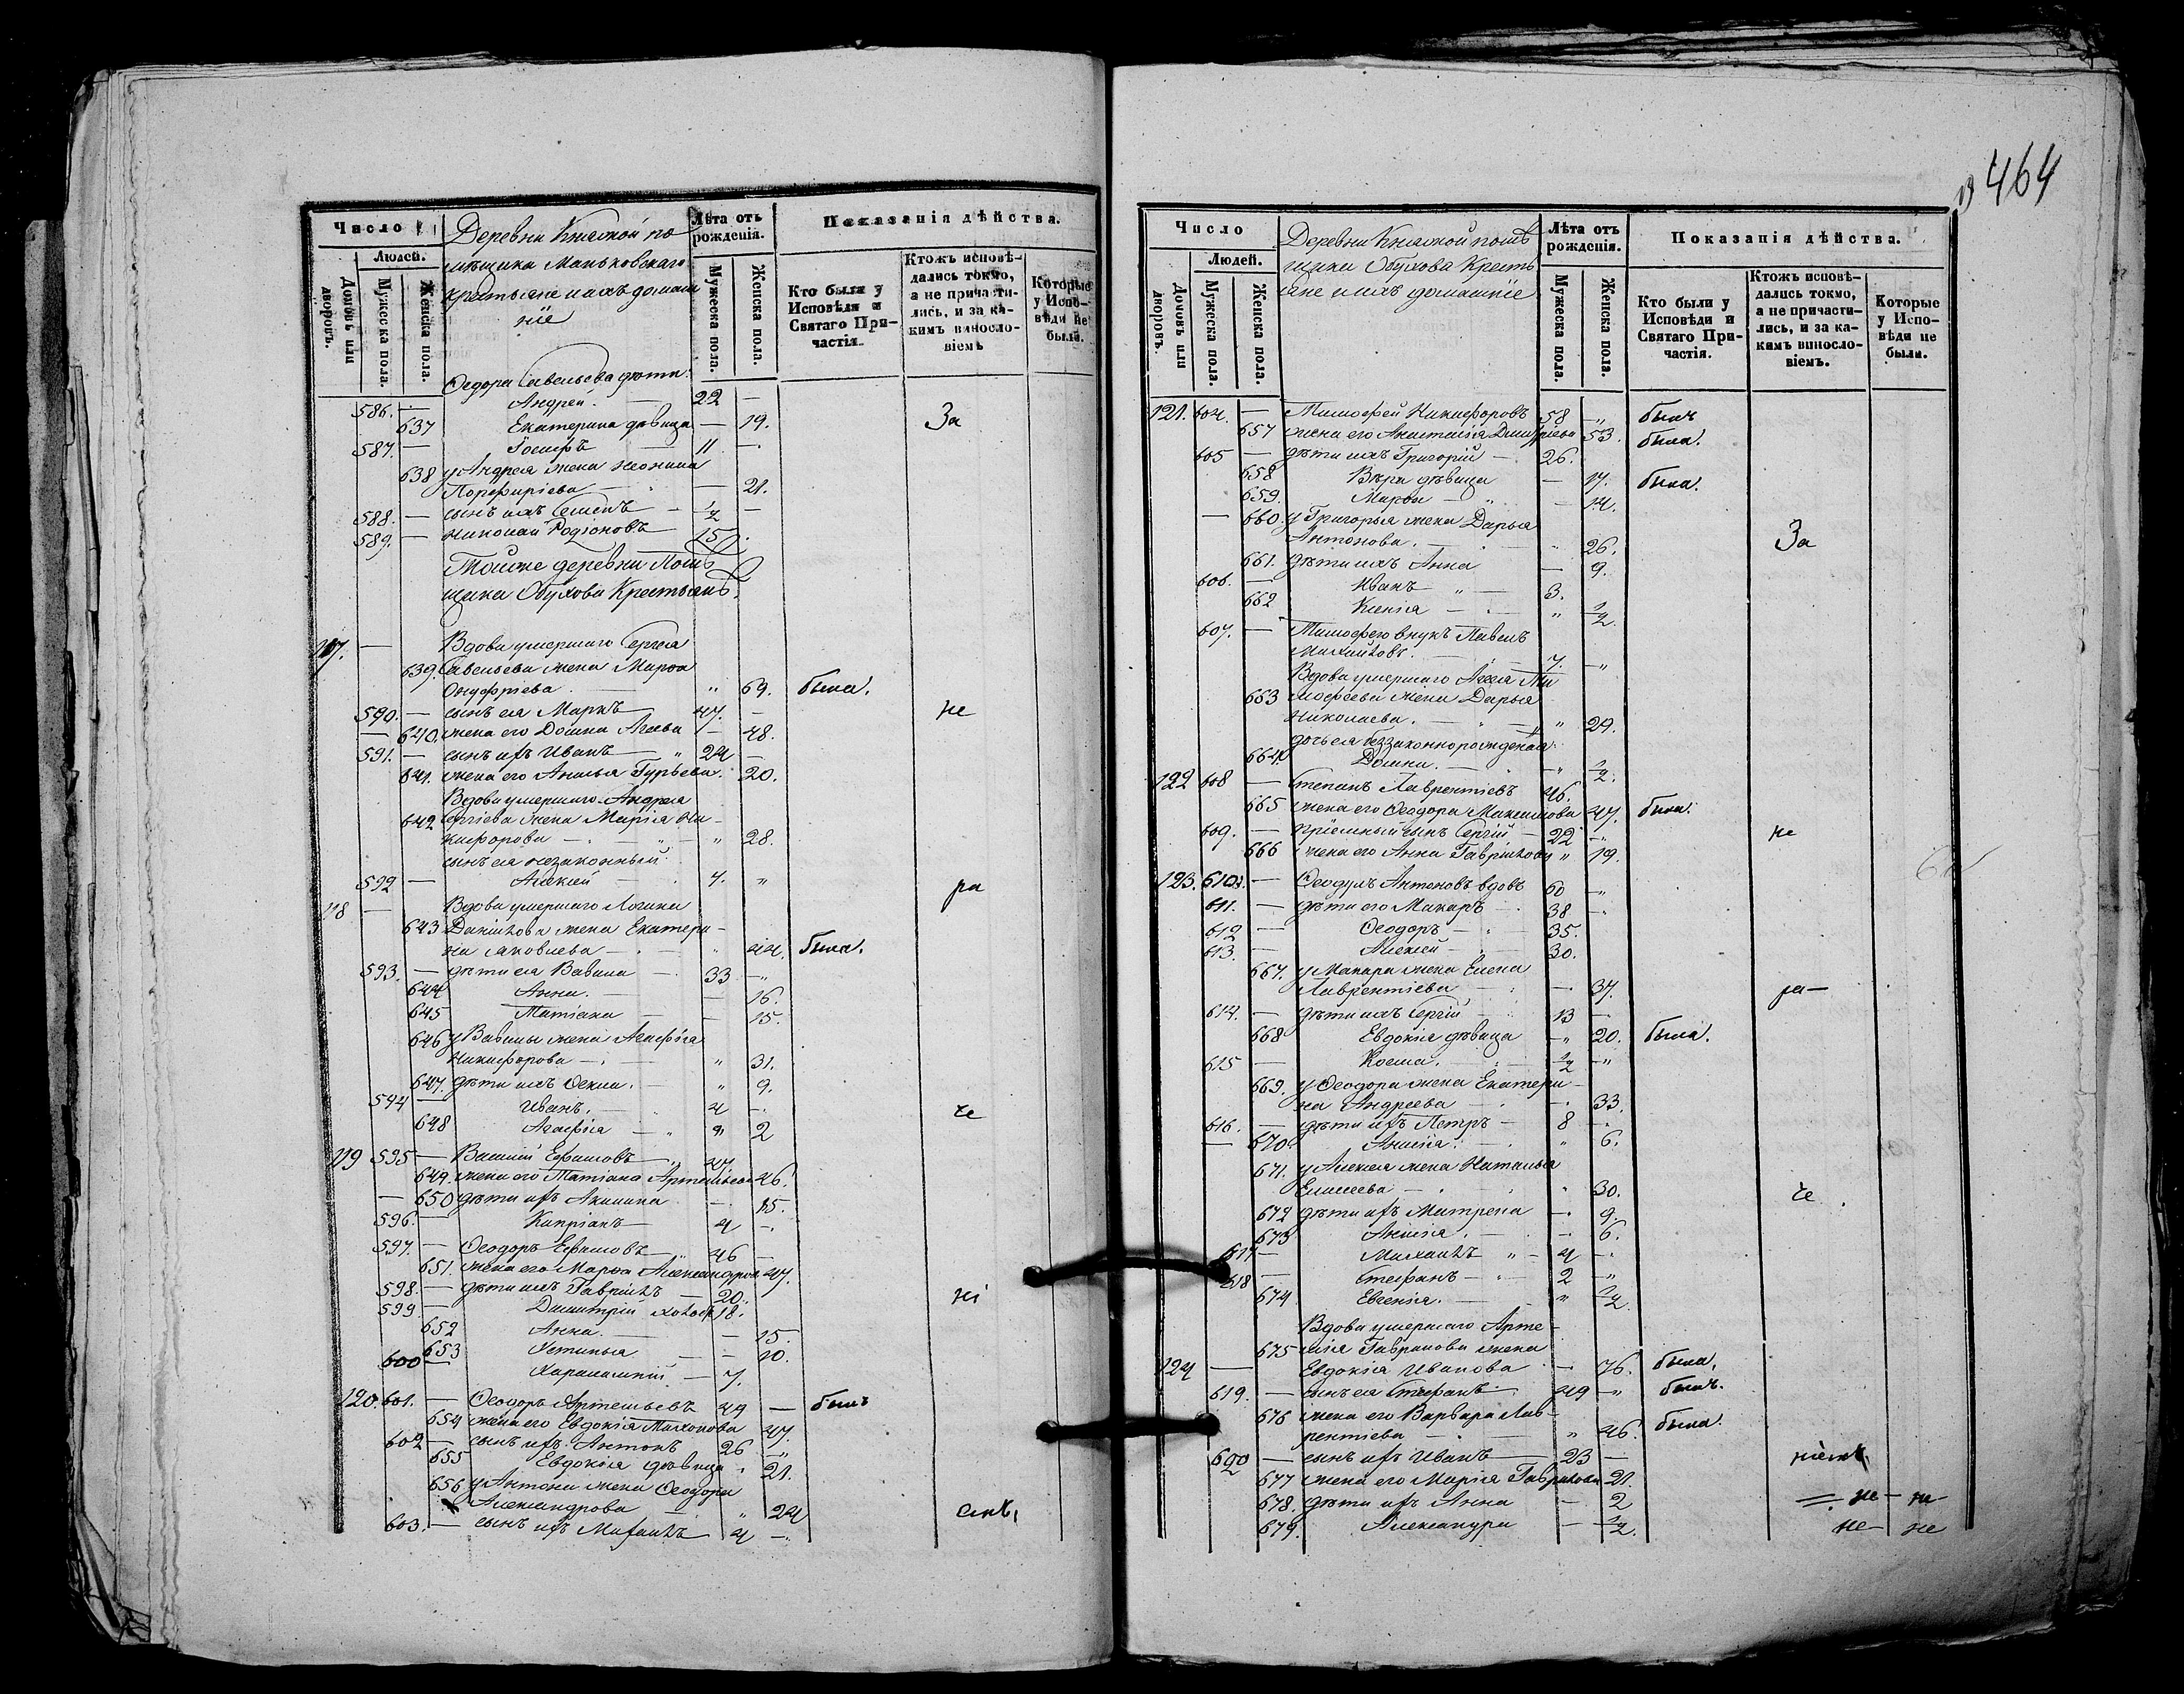 Число
Людей.
Домовъ или дворовъ.
Мужеска пола.
Женска пола.
Деревни Княжой по
мѣщика Маньковскаго
крестьяне и ихъ домаш
ніе
Лѣта отъ рожденія.
Мужеска пола.
Женска пола.
Показанія дѣйства.
Кто были у Исповѣди и Святаго При-
частія.
Ктожъ исповѣ-
дались токмо,
а не причасти-
лись, и за ка-
кимъ виносло-
віемъ
Которые
у Испо-
вѣди не
были.
Ѳедора Савельева дѣти:
586. — Андрей. — 22 —
637 Екатерина дѣвица — 19. За
587. — Іосифъ — 11 —
638 у Андрея жена
Порфиріева — — 21.
588. — сынъ ихъ Семенъ — ½ —
589. — Николай Родіоновъ — 15
Тойже деревни Помѣ
щика Обухова Крестьянъ.
117. — Вдова умершаго Сергѣя
639. Савельева жена Марѳа
Онуфріева. — " 69. была.
590. — сынъ ея Маркъ — 47. — не
— 640. жена его Домна Агѣева — 48.
591. — сынъ ихъ Иванъ — " 24 —
641. жена его Анисья Гурьева. 20.
Вдова умершаго Андрея
642 Сергіева жена Марія Ни-
кифорова — " — " 28.
сынъ ея незаконный:
592 — Алексѣй — 7. " ра
118 — Вдова умершаго Логина
643 Данилова жена Екатери-
на Яковлева — " 44. была.
593. — дѣти ея Вавила — 33 — "
644 Анна. — — 16.
645 Татіана — — 15.
646 у Вавилы жена Агафія
Никифорова — " 31.
647. дѣти ихъ Ѳекла. — " 9.
594 — Иванъ. — 4 —. че
648 Агафія — " " 2
119 595 — Василій Ефимовъ — 47
649. жена его Татіана Артемьева 46.
— 650 дѣти ихъ Акилина — 15.
596. — Кипріанъ — 4 —.
597. — Ѳеодоръ Ефимовъ " 46 —
651. жена его Марѳа Александрова 47.
598. — дѣти ихъ Гавріилъ — 20. ні
599 — Димитрій холостъ 18.
652 Анна. — — 15.
653 Устинья — — 10.
600 — Харалампій — 7.
120. 601. — Ѳеодоръ Артемьевъ 49 — былъ
654 жена его Евдокія 47.
602 — сынъ ихъ Антонъ 26 — "
655 Евдокія дѣвица " 21.
656 у Антона жена Ѳеодора
Александрова — " 24 емъ,
603. — сынъ ихъ Михаилъ 4 —.
464
Число
Людей.
Домовъ или дворовъ.
Мужеска пола.
Женска пола.
Деревни Княжой помѣ
щика Обухова Кресть
яне и ихъ домашніе
Лѣта отъ рожденія.
Мужеска пола.
Женска пола.
Показанія дѣйства.
Кто были у
Исповѣди и
Святаго При-
частія.
Ктожъ исповѣ-
дались токмо,
а не причасти-
лись, и за ка-
кимъ виносло-
віемъ.
Которые
у Испо-
вѣди не
были.
121. 604. — Тимоѳей Никифоровъ 58 — " былъ
657 жена его Анастасія Дмитріева 53. была.
605 — дѣти ихъ Григорій — 26.
658 Вѣра дѣвица — 17. была.
659. Марѳа — — 14.
— 660. у Григорья жена Дарья
Антонова. — " 26. За
661. дѣти ихъ Анна — 9.
606. — Иванъ " — 3.
662 Ксенія — " ½
607. — Тимоѳею внукъ Павелъ
Михайловъ. — 7. — "
Вдова умершаго Ти
663 моѳеева жена Дарья
Николаева. — " — " 29.
дочь ея беззаконнорожденая:
664. Домна. — " ½.
122 608 — Степанъ Лаврентіевъ 46.
665 жена его Ѳеодора Максимова 47. была.
609. — пріемный сынъ Сергій — 22 — " не
666 жена его Анна Гаврилова " 19.
123. 610. — Ѳеодулъ Антоновъ вдовъ 60 — "
611. — дѣти его Макаръ — 38 —.
612 — Ѳеодоръ — " — 35.
613. — Алексѣй — 30.
667. у Макара жена Елена
Лаврентіева — — 37. ра—
614. — дѣти ихъ Сергій — 13 —
668 Евдокія дѣвица — " 20. была.
615 — Косма. — ½ — "
669. у Ѳеодора жена Екатери-
на Андреева — —. 33.
616. — дѣти ихъ Петръ — 8 —.
— 670. Анисія. — " 6.
671. у Алексѣя жена Наталья
Елисеева — " 30. че
672 дѣти ихъ Матрена — 9.
673 Анисія. — 6.
617 — Михаилъ " — 4 —.
618 — Стефанъ — " — 2 — "
674 Евгенія. — " ½.
Вдова умершаго Арте-
675 мія Гаврилова жена
124 — Евдокія Иванова — 76. была.
619. — сынъ ея Стефанъ — 49 — " былъ.
676 жена его Варвара Лав-
рентіева — " 46. была.
620 — сынъ ихъ Иванъ — 23 —
677 жена его Марія Гаврилова 21.
678. дѣти ихъ Анна — 2 не — не
679. Александра — ½. не — не